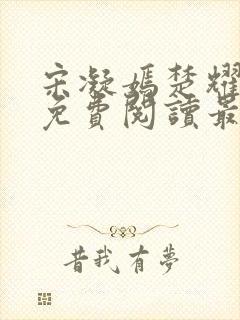 宋凝嫣楚耀
免費閱讀最
昔我有夢